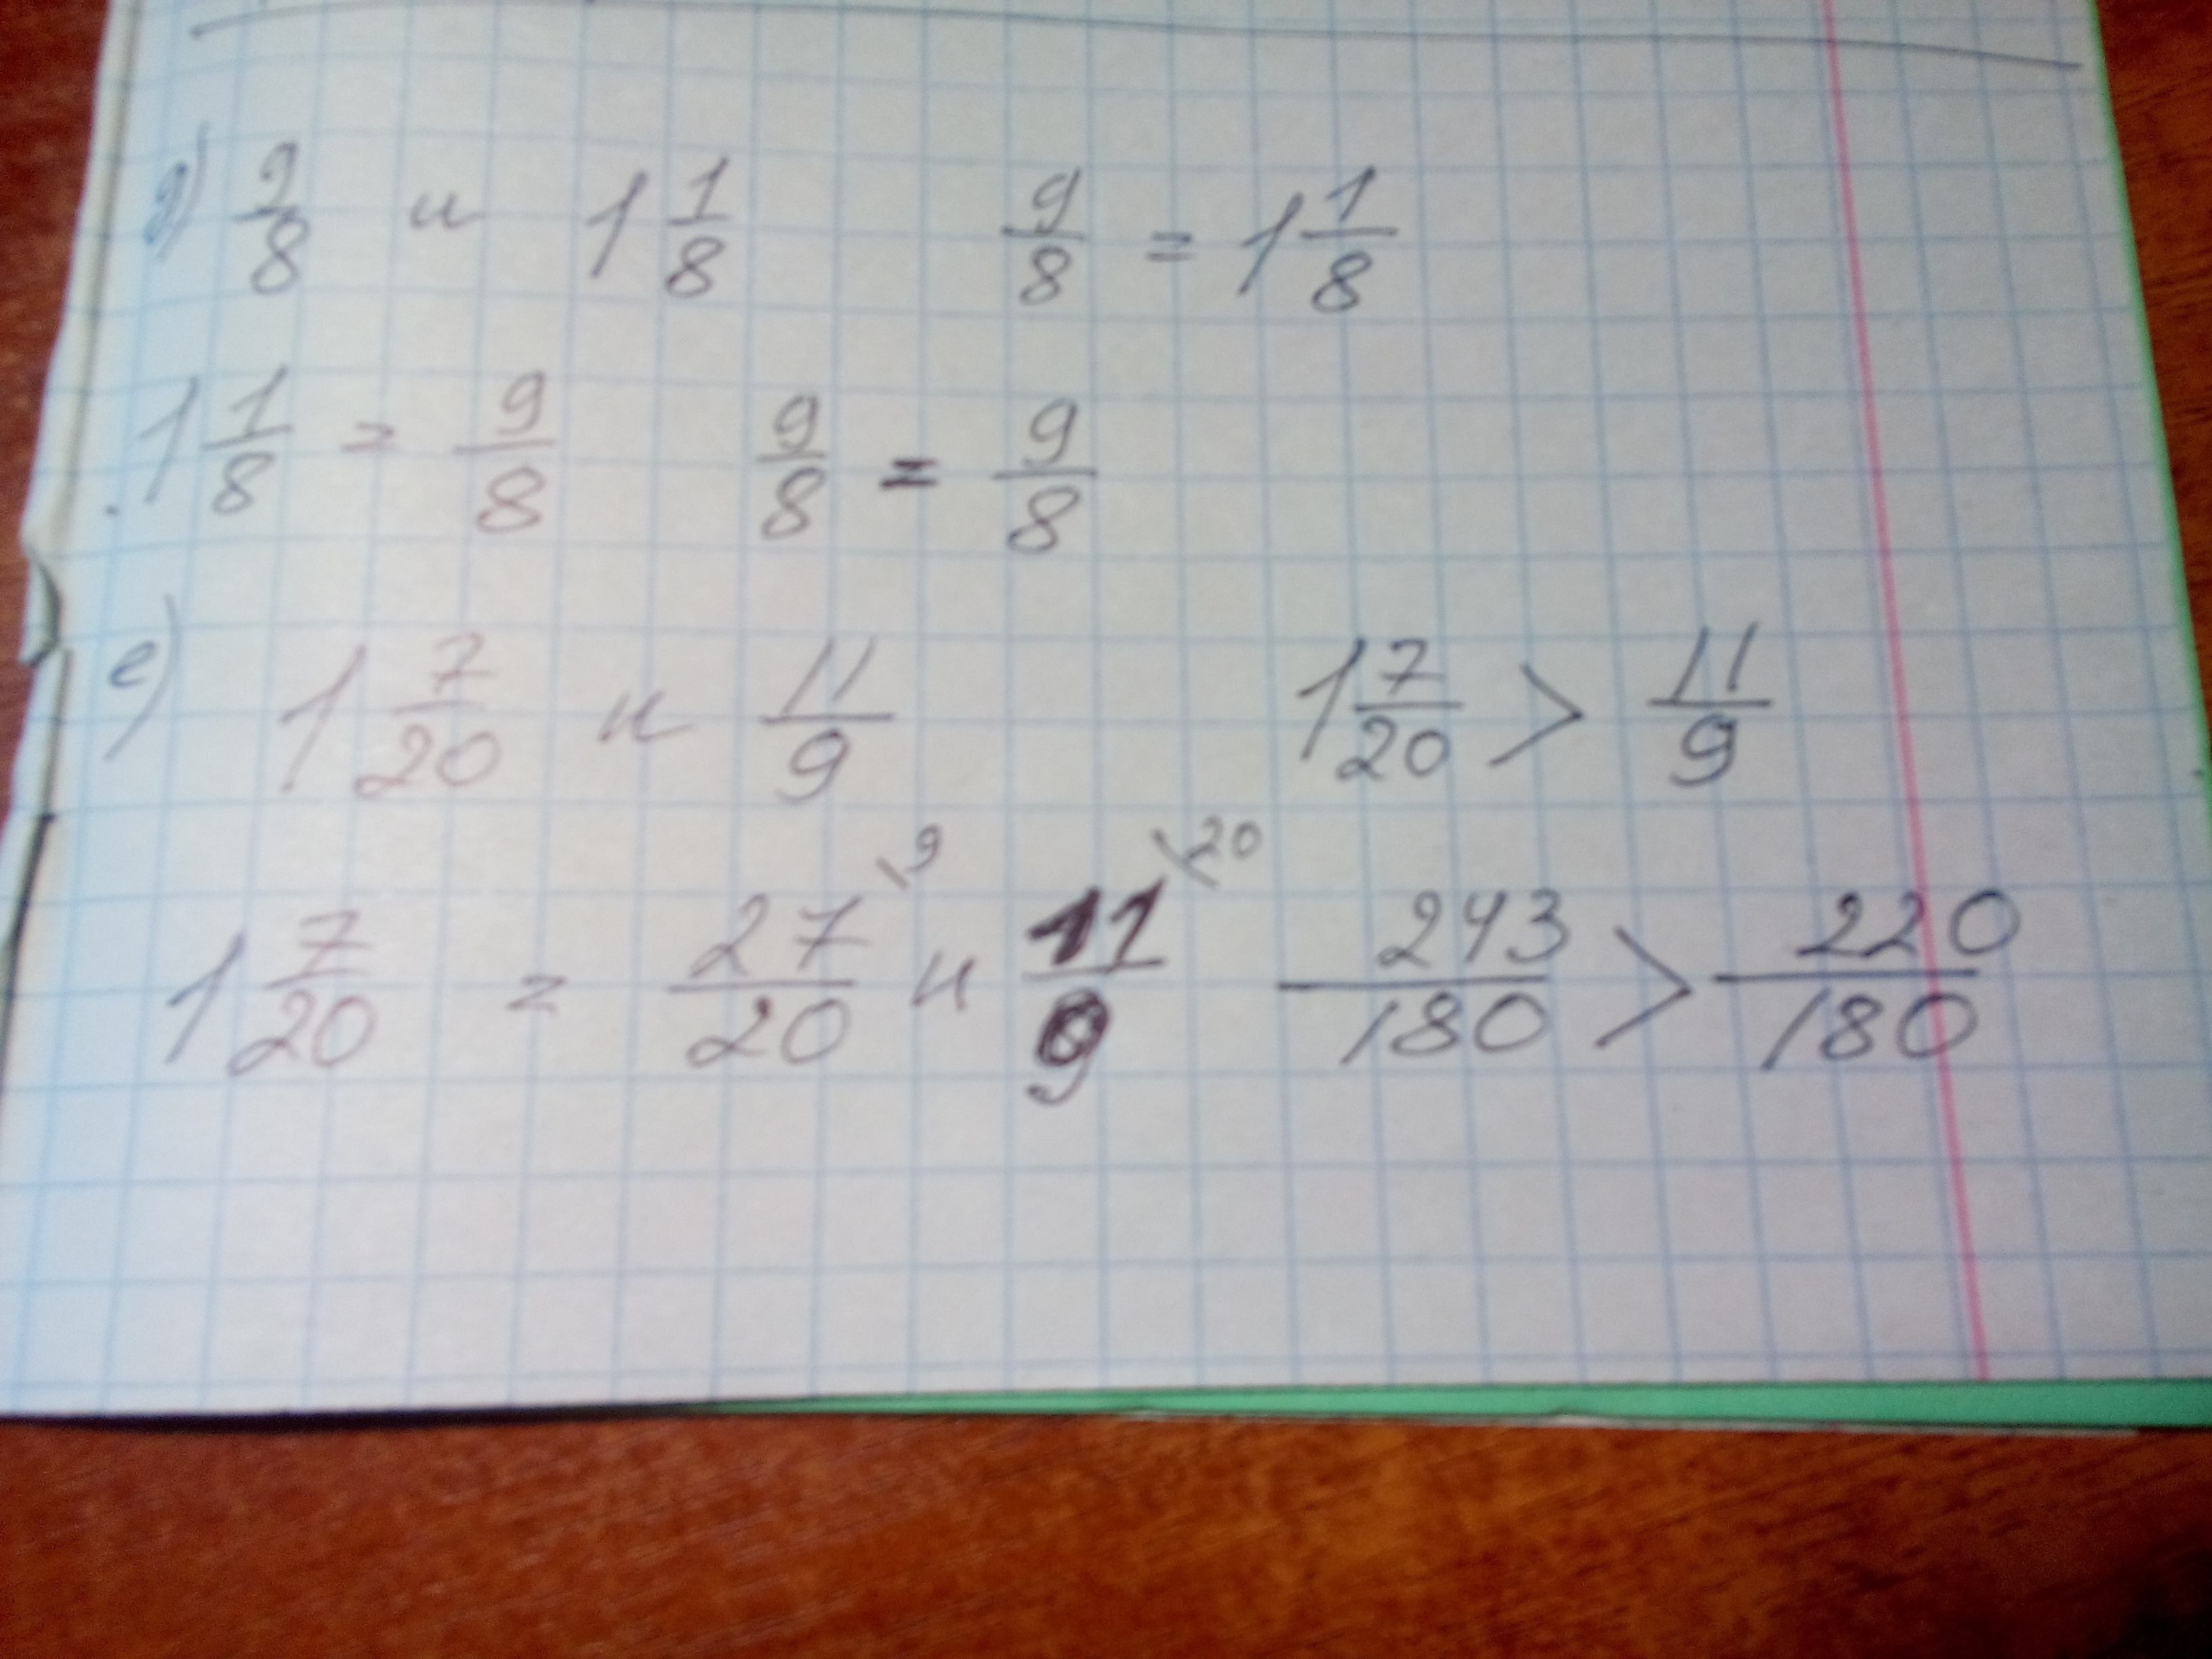 д) 9/8 и 1 1/8 9/8 = 1 1/8
1 1/8 = 9/8 9/8 = 9/8
е) 1 7/20 и 11/9 1 7/20 > 11/9
1 7/20 = 27/20 \9 и 11/9 \20 243/180 > 220/180